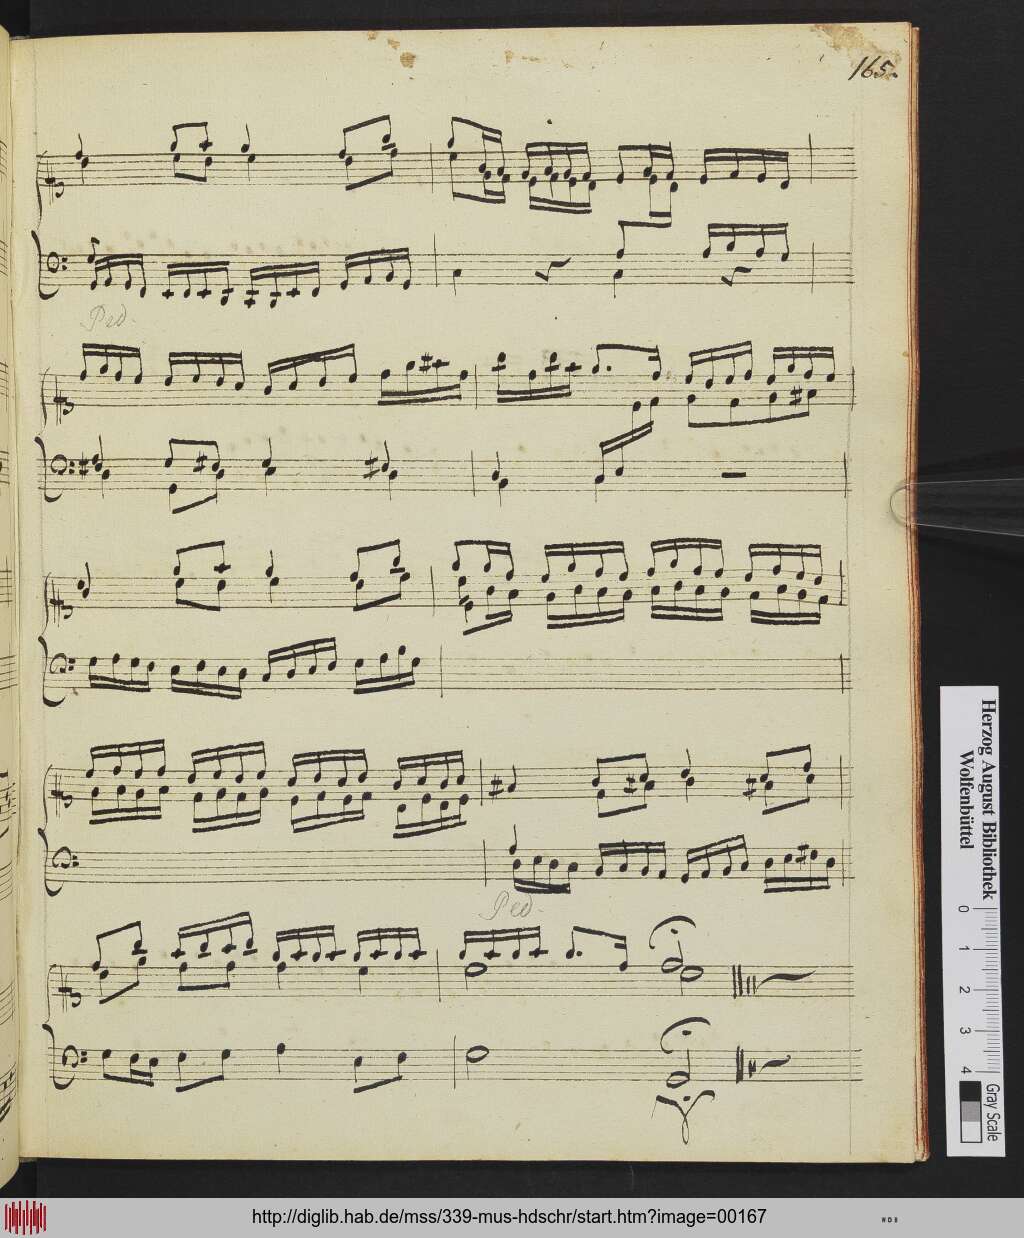 165.
Ped.
Ped.
Herzog August Bibliothek
Wolfenbüttel
0 1 2 3 4
Gray Scale
http://diglib.hab.de/mss/339-mus-hdschr/start.htm?image=00167